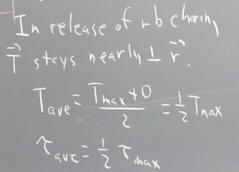 In release of rb chain,
T⃗ stays nearly ⊥ r⃗.
T_ave = (T_max + 0)/2 = 1/2 T_max
τ_ave = 1/2 τ_max